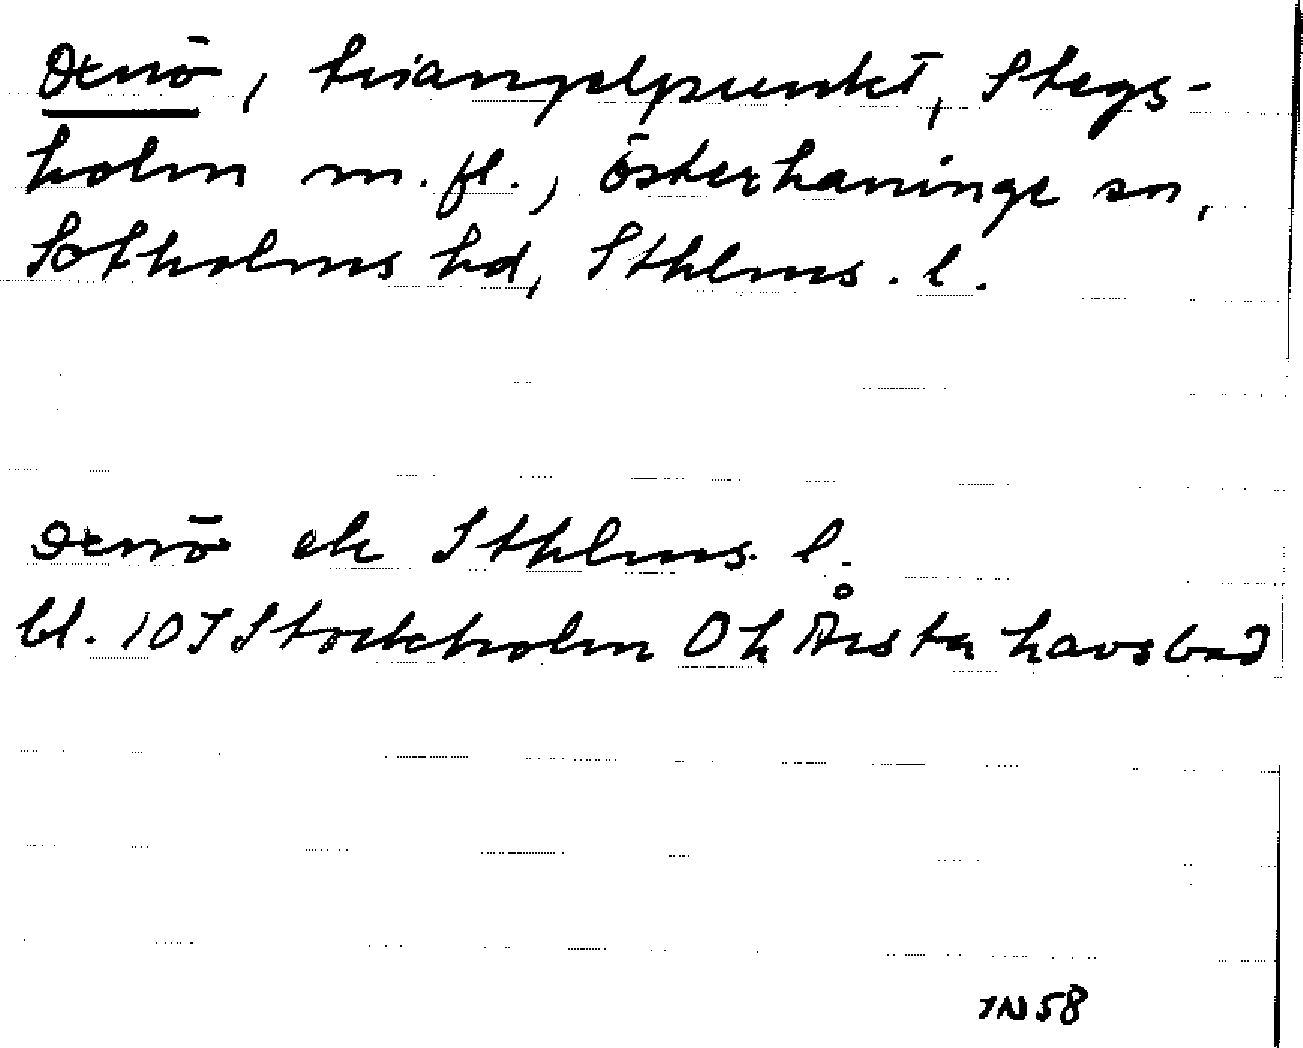 Oxnö, triangelpunkt, Stegs-
holm m.fl., Österhaninge sn,
Sotholms hd, Sthlms. l.
Oxnö ek Sthlms. l.
bl. 10I Stockholm Oh Årsta havsbad
IN 58